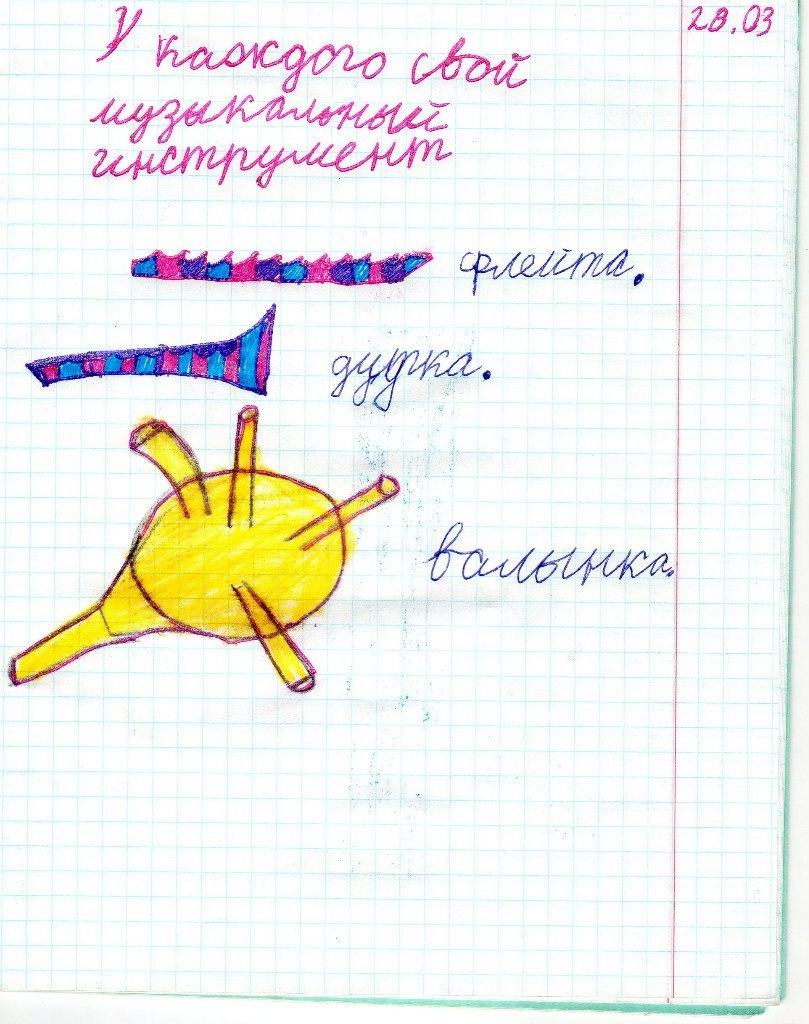 28.03
У каждого свой
музыкальный
инструмент
флейта.
дудка.
валынка.